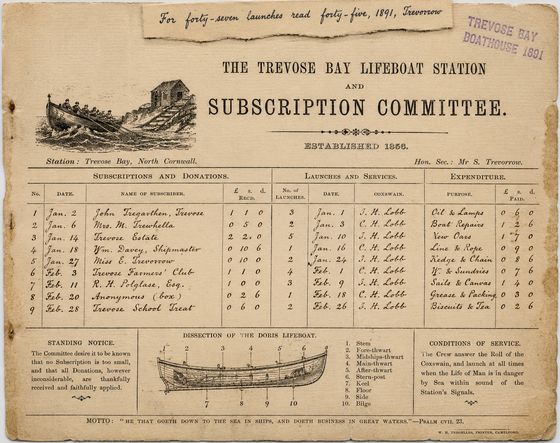 For forty-seven launches read forty-five, 1891, Trevorrow
TREVOSE BAY
BOATHOUSE 1891
THE TREVOSE BAY LIFEBOAT STATION
AND
SUBSCRIPTION COMMITTEE.
ESTABLISHED 1866.
Station: Trevose Bay, North Cornwall.
Hon. Sec.: Mr S. Trevorrow.
SUBSCRIPTIONS AND DONATIONS. LAUNCHES AND SERVICES. EXPENDITURE.
No. DATE. NAME OF SUBSCRIBER. £ s. d. RECD. No. of LAUNCHES. DATE. COXSWAIN. PURPOSE. £ s. d. PAID.
1 Jan. 2 John Tregarthen, Trevose 1 1 0 3 Jan. 1 J. H. Lobb Oil & Lamps 0 6 0
2 Jan. 6 Mrs. M. Trewhella 0 5 0 2 Jan. 3 C. H. Lobb Boat Repairs 1 2 6
3 Jan. 14 Trevose Estate 2 2 0 5 Jan. 10 J. H. Lobb New Oars 1 7 0
4 Jan. 18 Wm. Davey, Shipmaster 0 10 6 1 Jan. 16 C. H. Lobb Line & Rope 0 9 0
5 Jan. 27 Miss E. Trevorrow 0 10 0 2 Jan. 24 J. H. Lobb Kedge & Chain 0 8 6
6 Feb. 3 Trevose Farmers' Club 1 1 0 4 Feb. 1 C. H. Lobb W. & Sundries 0 7 6
7 Feb. 11 R. H. Polglase, Esq. 1 0 0 3 Feb. 9 J. H. Lobb Sails & Canvas 1 4 0
8 Feb. 20 Anonymous (box) 0 2 6 1 Feb. 18 C. H. Lobb Grease & Packing 0 3 0
9 Feb. 28 Trevose School Treat 0 6 0 2 Feb. 26 J. H. Lobb Biscuits & Tea 0 2 6
STANDING NOTICE.
The Committee desire it to be known
that no Subscription is too small,
and that all Donations, however
inconsiderable, are thankfully
received and faithfully applied.
DISSECTION OF THE DORIS LIFEBOAT.
1 2 3 4 5 6
7 8 9 10
1. Stem
2. Fore-thwart
3. Midships-thwart
4. Main-thwart
5. After-thwart
6. Stern-post
7. Keel
8. Floor
9. Side
10. Bilge
CONDITIONS OF SERVICE.
The Crew answer the Roll of the
Coxswain, and launch at all times
when the Life of Man is in danger
by Sea within sound of the
Station's Signals.
MOTTO: "HE THAT GOETH DOWN TO THE SEA IN SHIPS, AND DOETH BUSINESS IN GREAT WATERS."—PSALM CVII. 23.